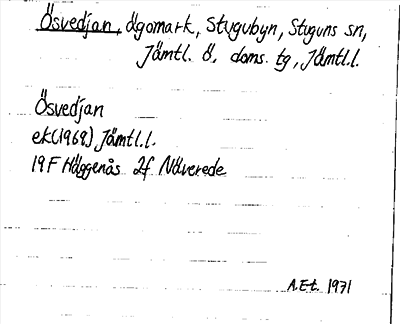 Ösvedjan, ägomark, Stugubyn, Stuguns sn,
Jämtl. ö. doms. tg, Jämtl.l.
Ösvedjan
ek(1969) Jämtl.l.
19F Häggenås 2f Näverede
A.Et. 1971